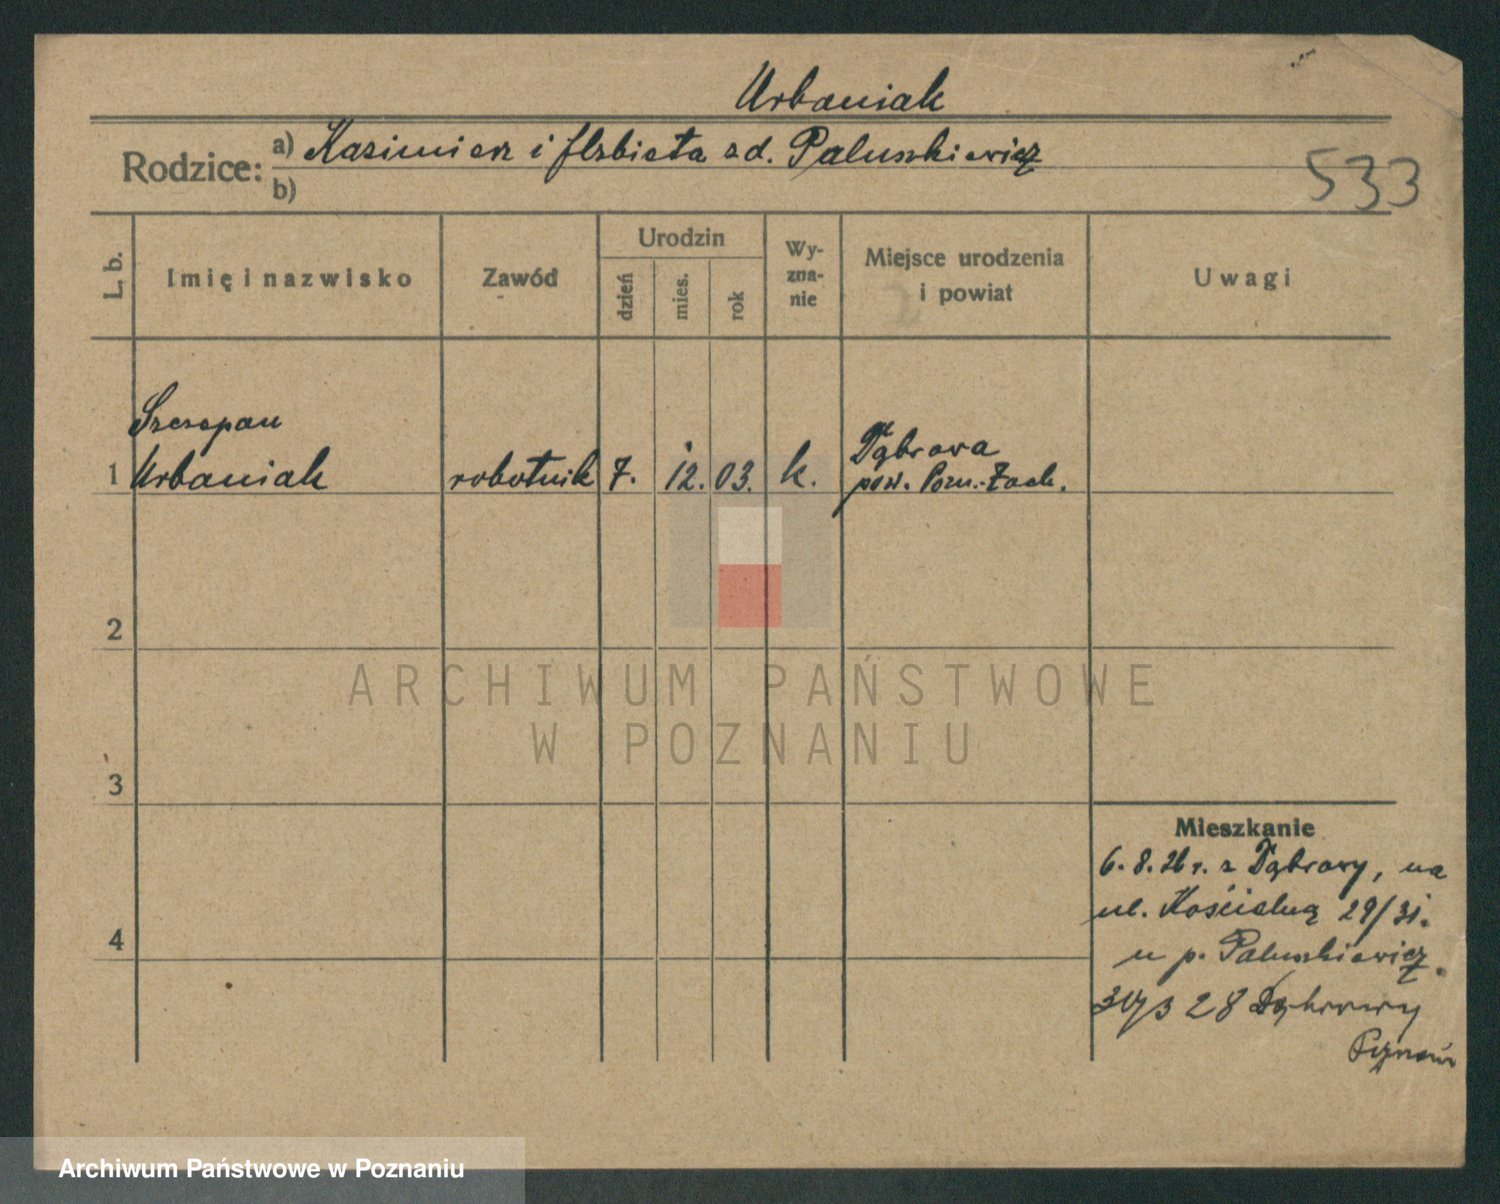 Urbaniak
Rodzice:
a) Kazimierz i Elzbieta zd. Paluszkiewicz
b)
533
L. b.
Imię i nazwisko
Zawód
Urodzin
dzień
mies.
rok
Wy-
zna-
nie
Miejsce urodzenia
i powiat
Uwagi
Szczepan
1 Urbaniak robotnik 7. 12. 03. k.
Dąbrowa
pow. Pozn.-Zach.
2
3
4
Mieszkanie
6. 8. 26 r. z Dąbrowy, na
ul. Kościelną 29/31.
u p. Paluszkiewicz.
28 Dąbrowy
Poznań
ARCHIWUM PAŃSTWOWE
W POZNANIU
Archiwum Państwowe w Poznaniu